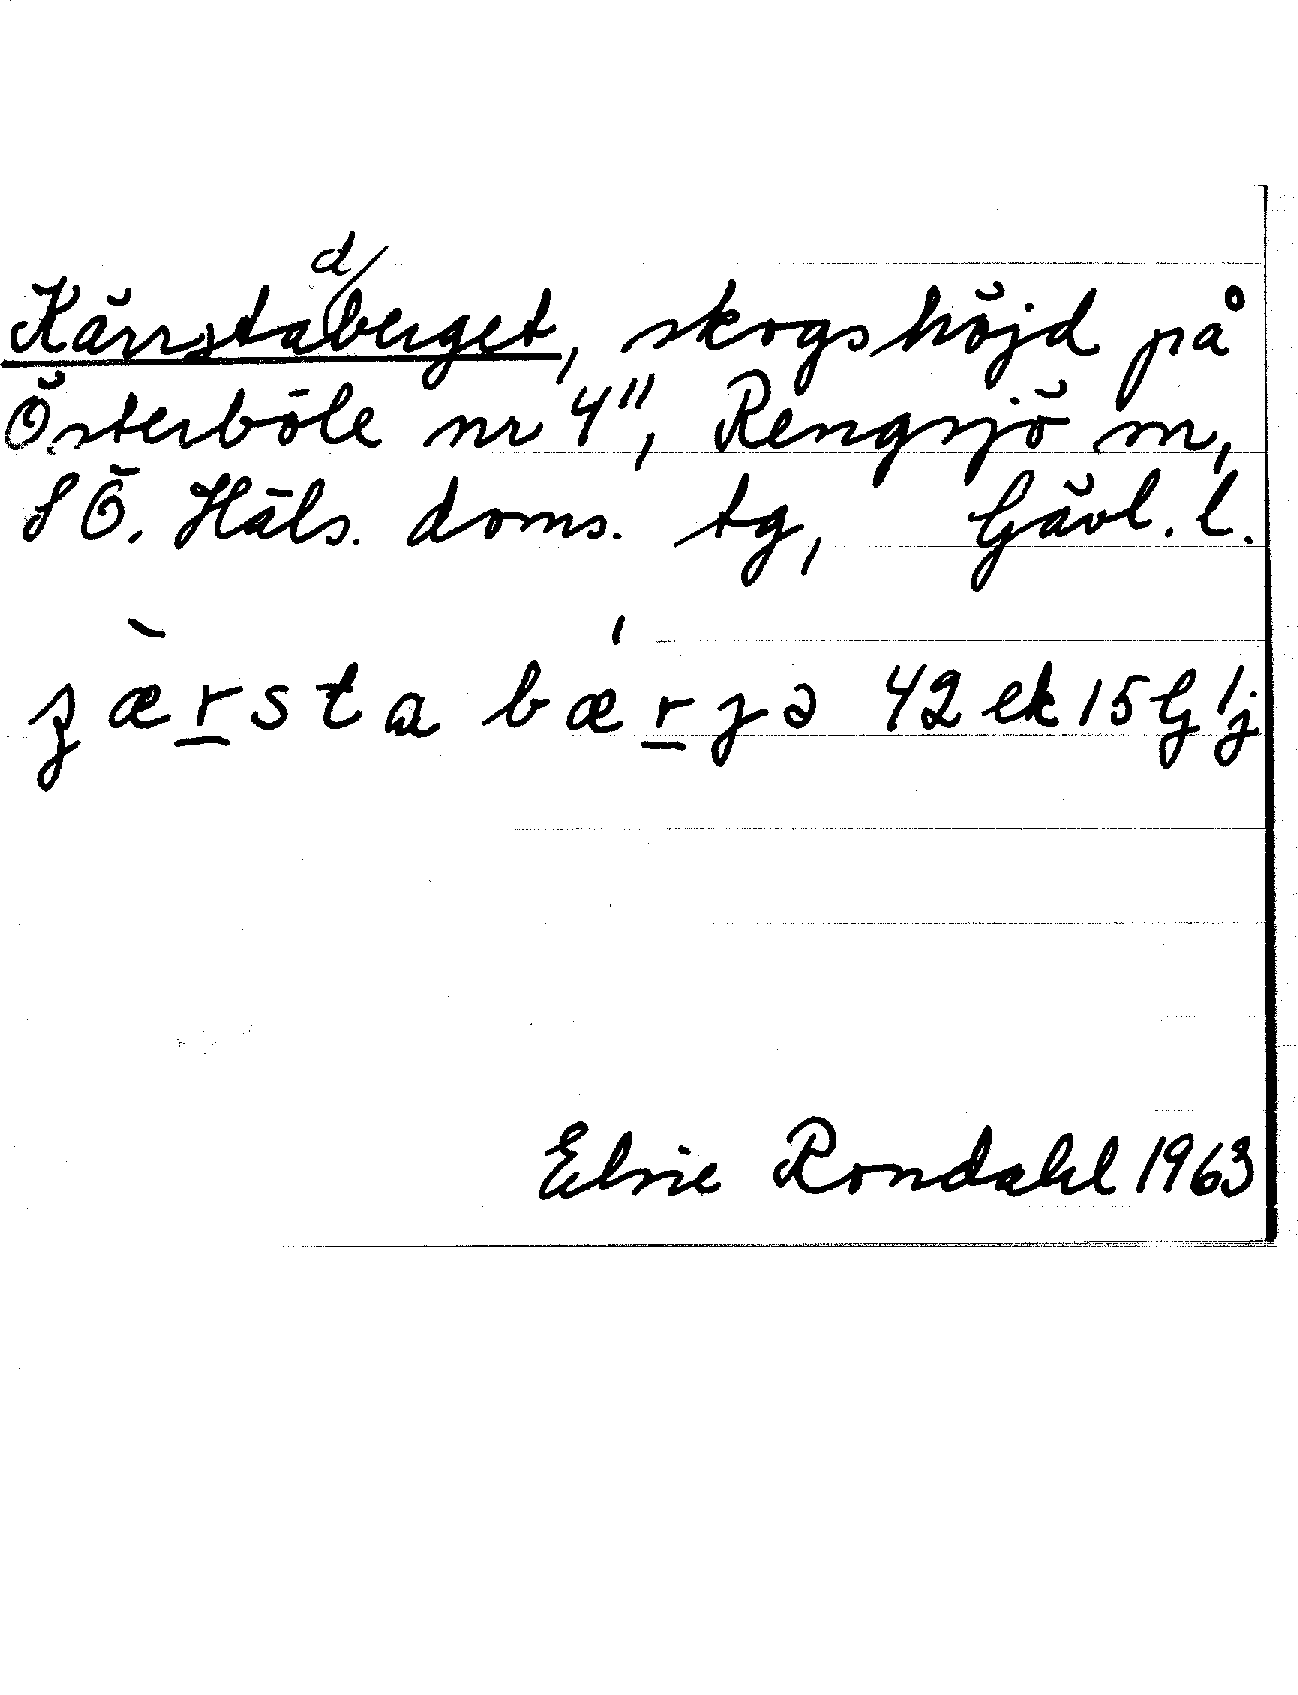 d/
Kärrstaberget, skogshöjd på
Österböle nr 4", Rengsjö sn,
SÖ. Häls. doms. tg, Gävl. l.
bærjə 42 ek 15 G
Elsie Rondahl 1963